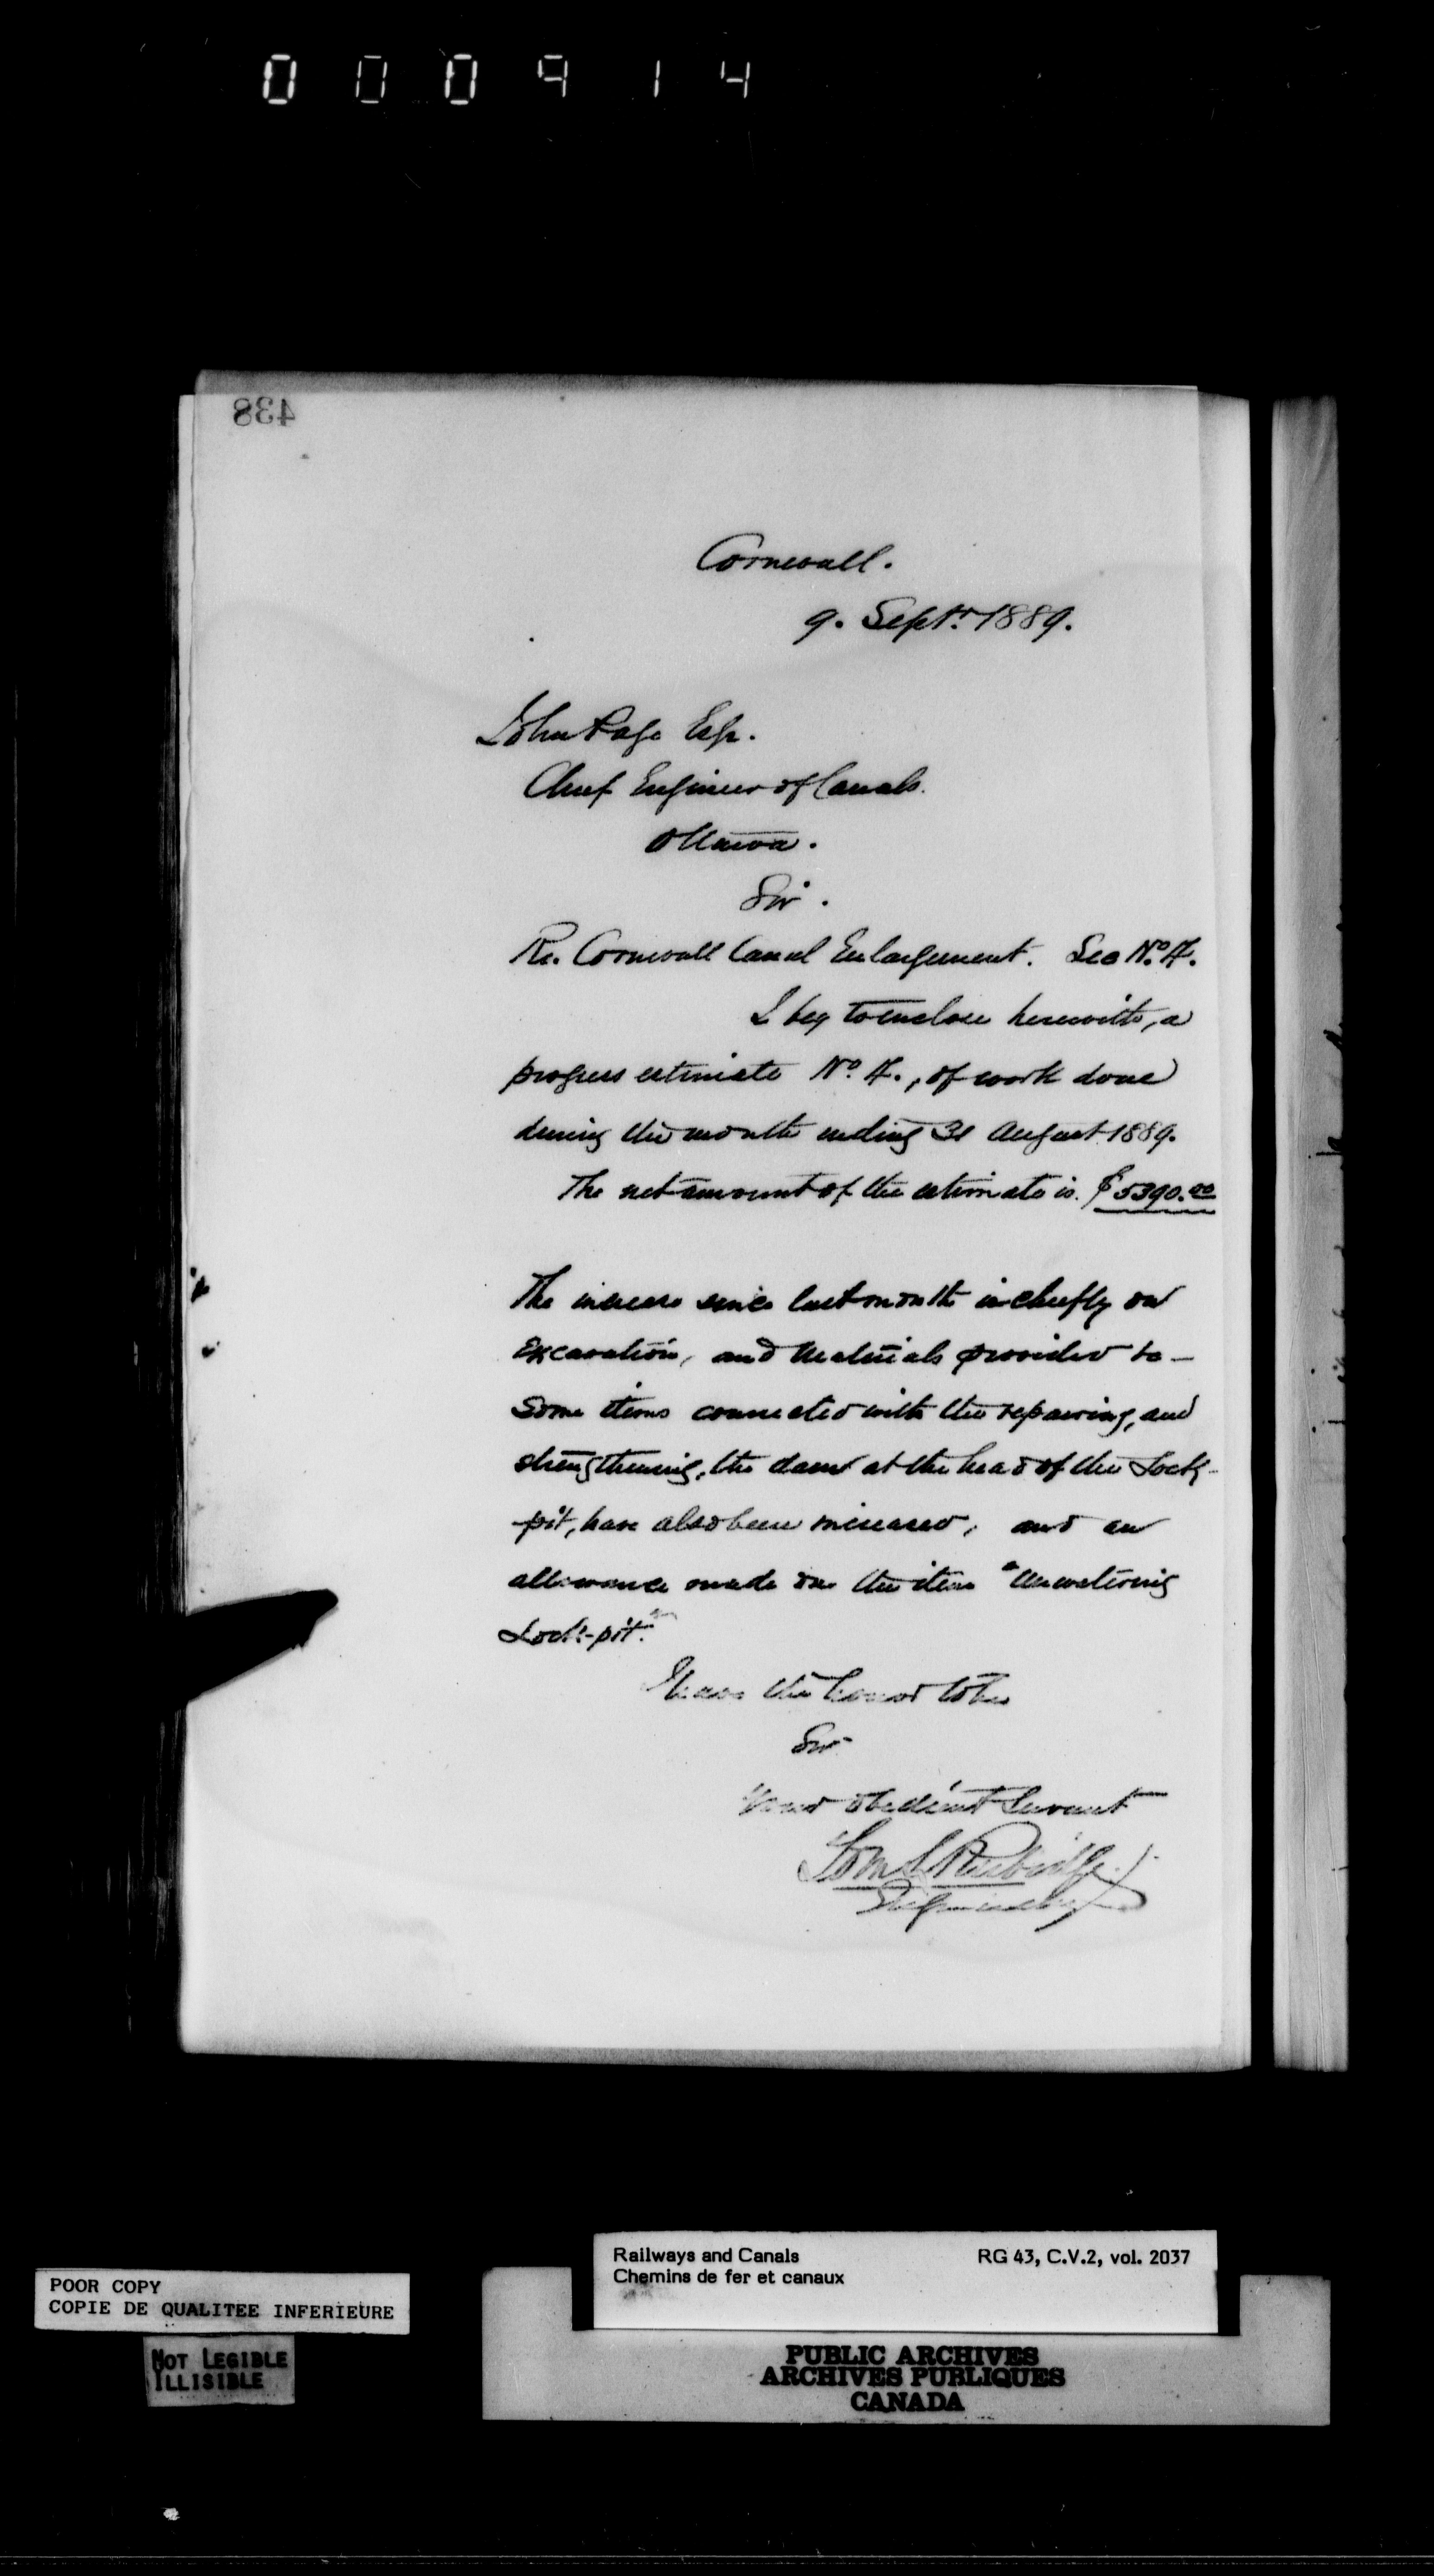 000914
438
Cornwall.
9. Septr. 1889.
John Page Esq.
Chief Engineer of Canals.
Ottawa.
Sir.
Re. Cornwall Canal Enlargement. Sec No. 4.
I beg to enclose herewith, a
progress estimate No. 4., of work done
during the month ending 31 August 1889.
The net amount of the estimate is. $5390.00
The increase since last month is chiefly on
Excavation, and Materials provided to —
Some items connected with the repairing, and
strengthening, the dam at the head of the Lock-
pit, have also been increased, and an
allowance made on the item "Unwatering
Lock-pit."
I have the honor to be
Sir
Your obedient Servant
Tom S Rubidge
Railways and Canals RG 43, C.V.2, vol. 2037
Chemins de fer et canaux
POOR COPY
COPIE DE QUALITEE INFERIEURE
NOT LEGIBLE
ILLISIBLE
PUBLIC ARCHIVES
ARCHIVES PUBLIQUES
CANADA